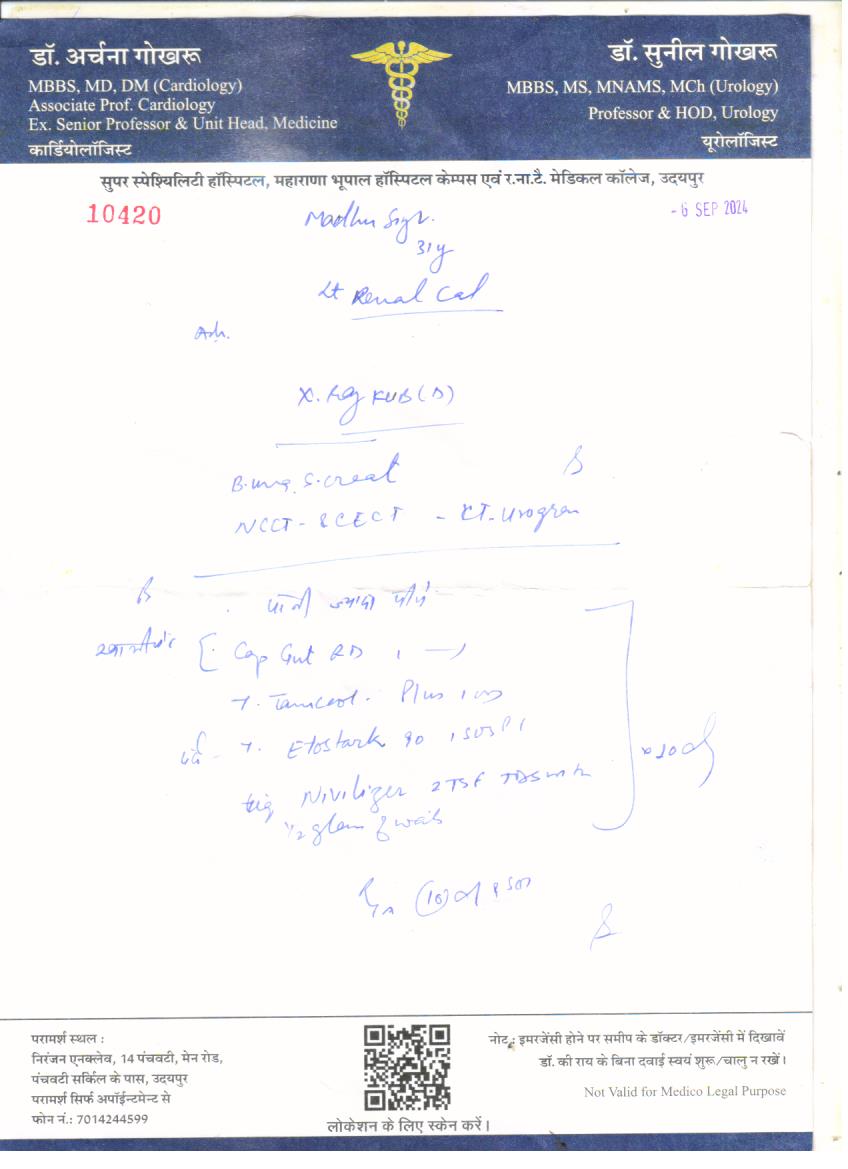 डॉ. अर्चना गोखरू
MBBS, MD, DM (Cardiology)
Associate Prof. Cardiology
Ex. Senior Professor & Unit Head, Medicine
कार्डियोलॉजिस्ट
डॉ. सुनील गोखरू
MBBS, MS, MNAMS, MCh (Urology)
Professor & HOD, Urology
यूरोलॉजिस्ट
सुपर स्पेश्यिलिटी हॉस्पिटल, महाराणा भूपाल हॉस्पिटल केम्पस एवं र.ना.टै. मेडिकल कॉलेज, उदयपुर
10420
- 6 SEP 2024
Madhu
31y
Lt Renal Cal
Adv.
X. Ray KUB (D)
B. urea, S. creat
NCCT - & CECT - CT - Urogram
पानी ज्यादा पीये
Cap Gut RD 1
T. Plus 1
T. Etostark 90 1 SOS
Nivilizer 2 TSF TDS
1/2 glass of water
परामर्श स्थल :
निरंजन एनक्लेव, 14 पंचवटी, मेन रोड,
पंचवटी सर्किल के पास, उदयपुर
परामर्श सिर्फ अपॉईन्टमेन्ट से
फोन नं.: 7014244599
लोकेशन के लिए स्केन करें।
नोट : इमरजेंसी होने पर समीप के डॉक्टर/इमरजेंसी में दिखावें
डॉ. की राय के बिना दवाई स्वयं शुरू/चालु न रखें।
Not Valid for Medico Legal Purpose